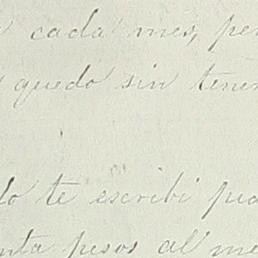 cada mes, pe
quedo sin tener
lo te escribi pa
nta pesos al me